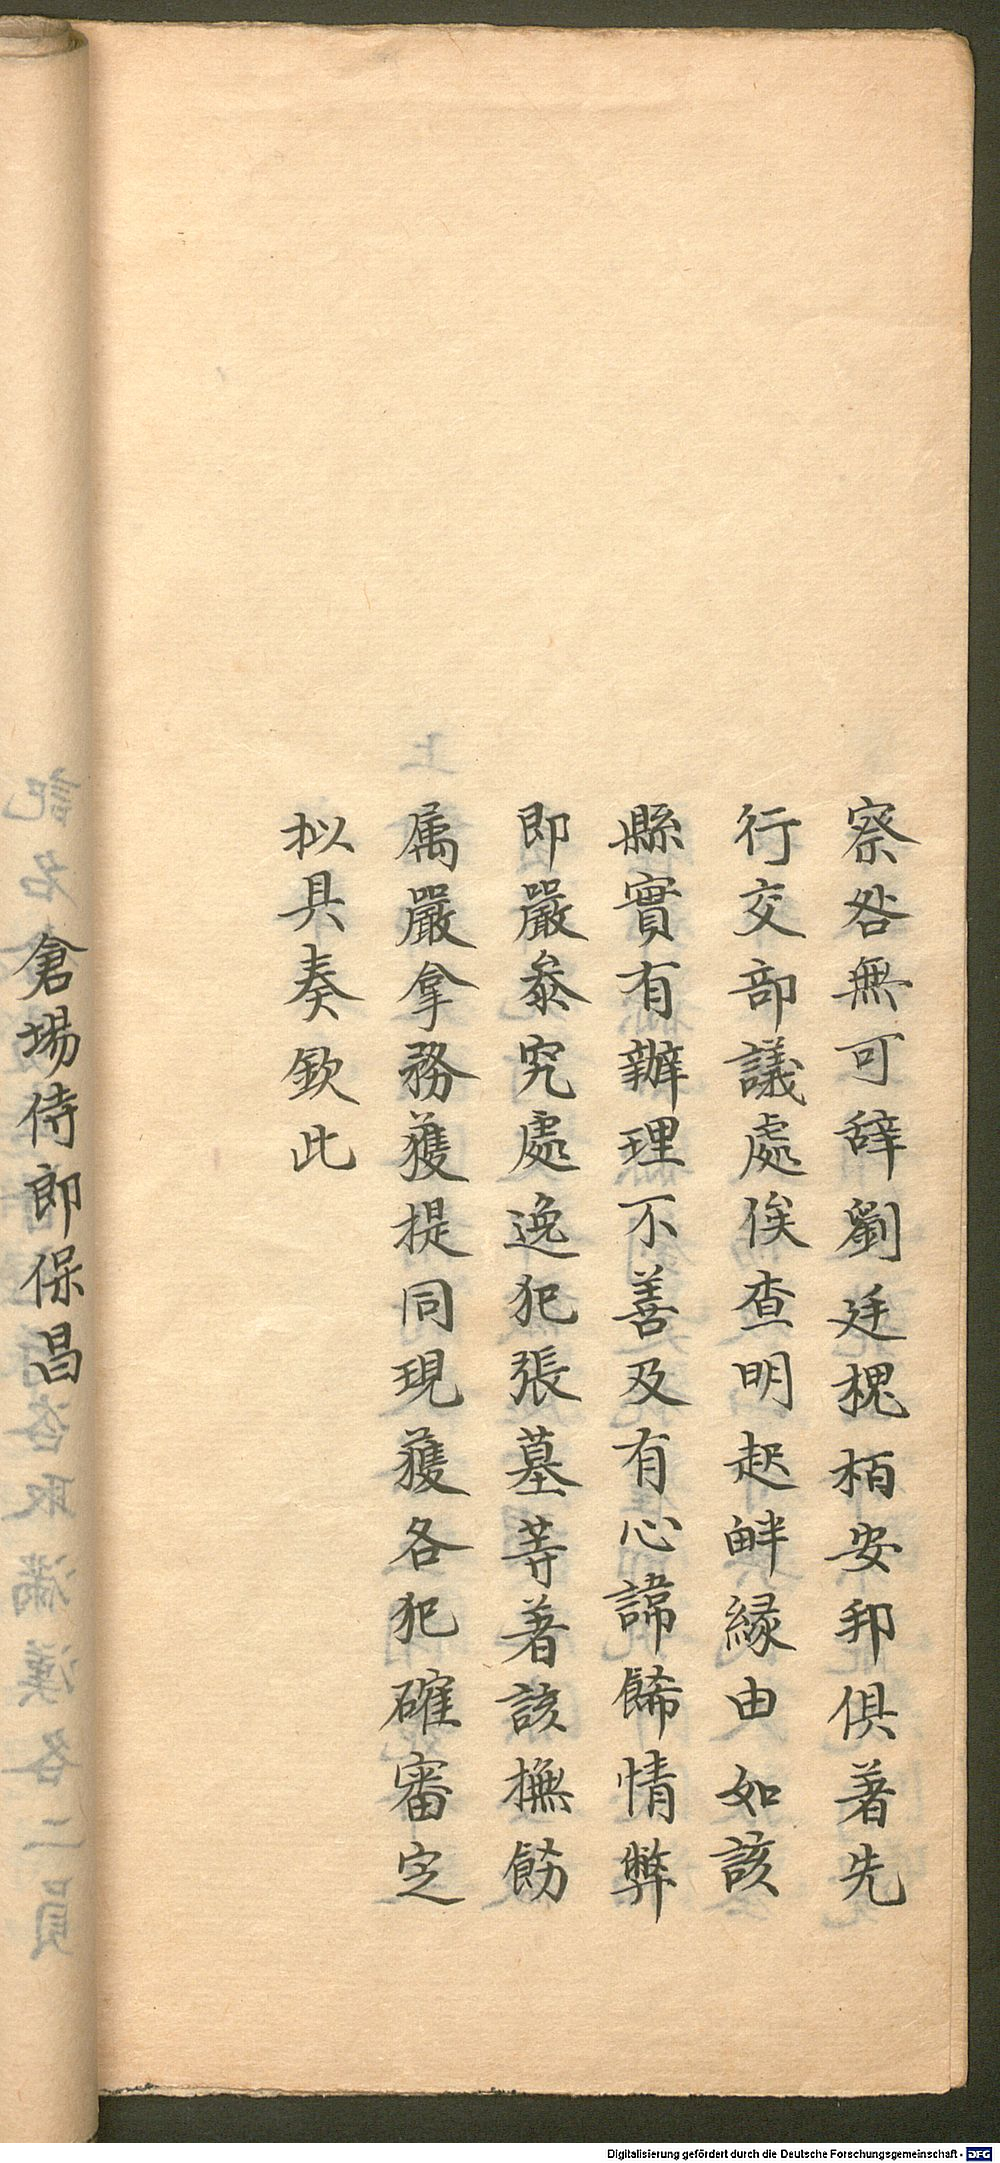 察咎無可辞劉廷槐栢安邦俱著先
行交部議處俟查明起衅縁由如該
縣實有辦理不善及有心諱餙情弊
即嚴叅究處逸犯張墓等著該撫飭
属嚴拿務獲提同現獲各犯確審定
拟具奏欽此
倉場侍郎保昌
Digitalisierung gefördert durch die Deutsche Forschungsgemeinschaft - DFG